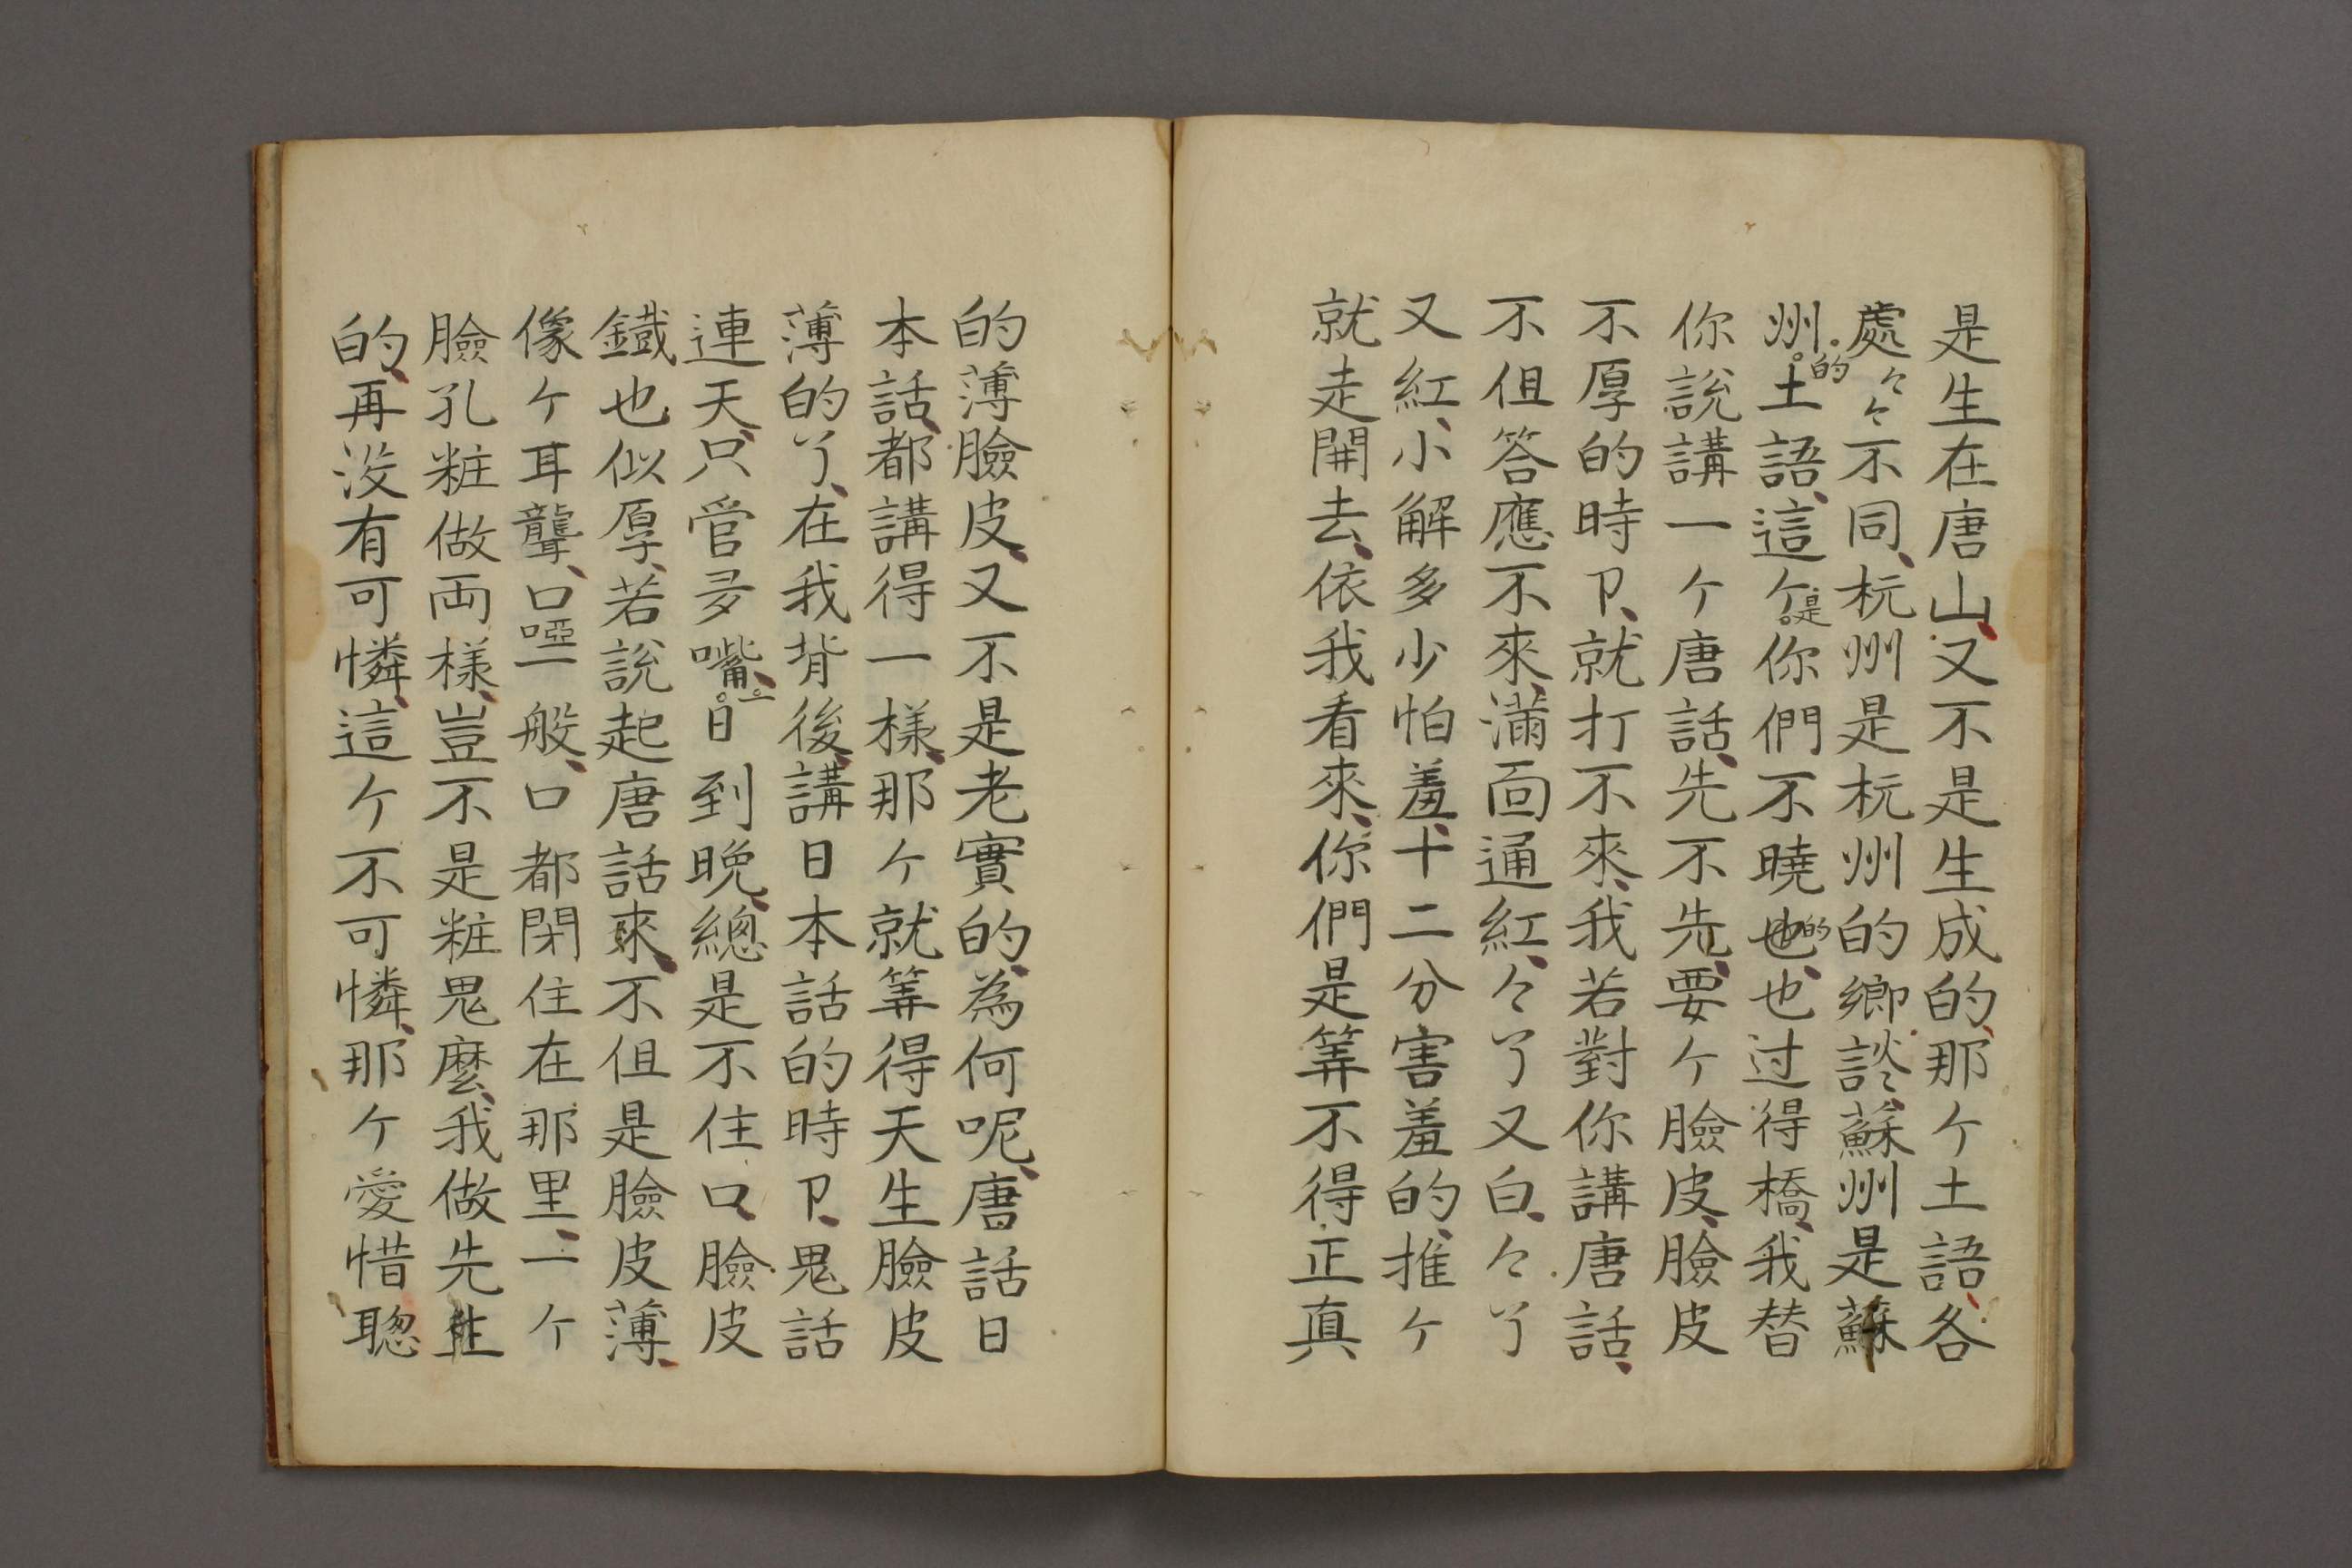 是生在唐山、又不是生成的、那ケ土語、各
處々々不同、杭州是杭州的鄉談、蘇州是蘇
州的土語、這ケ是你們不曉的也、也过得橋、我替
你說講一ケ唐話、先不先、要ケ臉皮、臉皮
不厚的時卩、就打不來、我若對你講唐話、
不但答應不來、滿面通紅、々了又白、々了
又紅、小解多少怕羞、十二分害羞的、推ケ
就走開去、依我看來、你們是筭不得正真
的薄臉皮、又不是老實的、為何呢、唐話日
本話、都講得一樣、那ケ就筭得天生臉皮
薄的了、在我背後、講日本話的時卩、鬼話
連天、只管多嘴、一日到晚、總是不住口、臉皮
鐵也似厚、若說起唐話來、不但是臉皮薄、
像ケ耳聾、口啞一般、口都閉住在那里、一ケ
臉孔粧做両樣、豈不是粧鬼麼、我做先生
的、再没有可憐、這ケ不可憐、那ケ愛惜聰